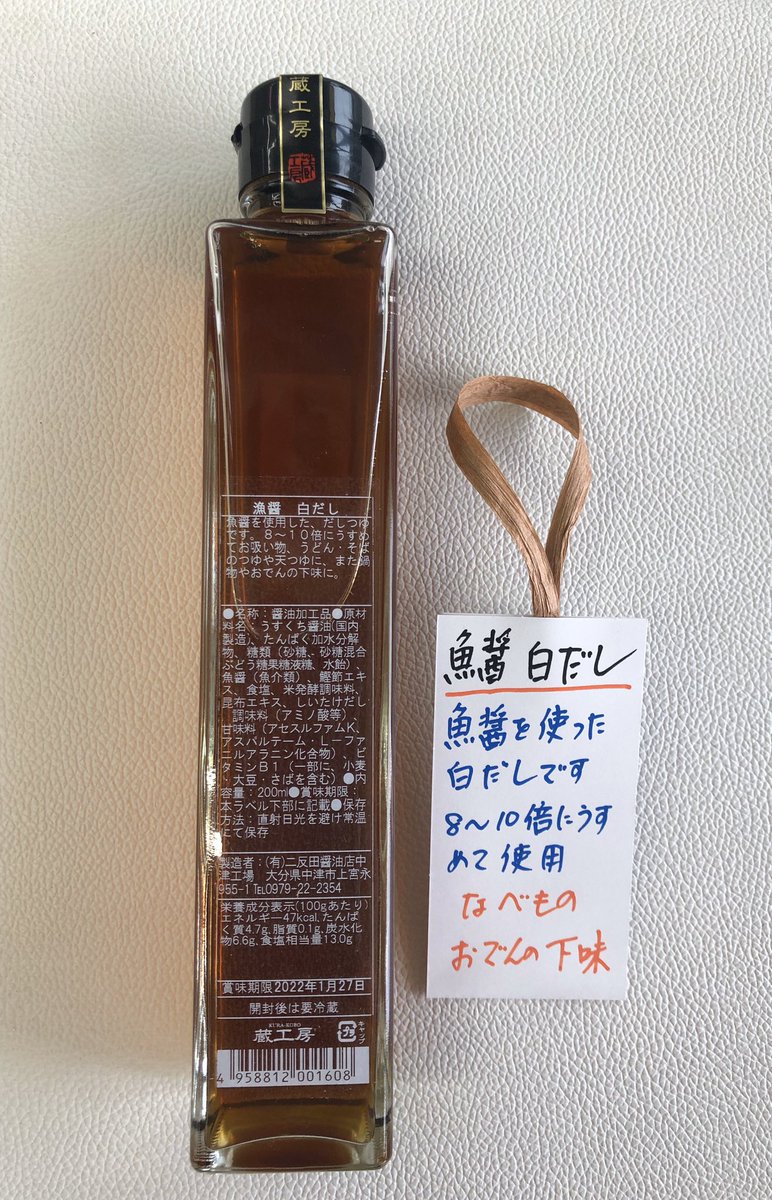 蔵工房
漁醤 白だし
魚醤を使用した、だしつゆ
です。8～10倍にうすめ
てお吸い物、うどん・そば
のつゆや天つゆに、また鍋
物やおでんの下味に。
●名称：醤油加工品●原材
料名：うすくち醤油(国内
製造)、たんぱく加水分解
物、糖類（砂糖、砂糖混合
ぶどう糖果糖液糖、水飴）、
魚醤（魚介類）、鰹節エキ
ス、食塩、米発酵調味料、
昆布エキス、しいたけだし
調味料（アミノ酸等）
甘味料（アセスルファムK、
アスパルテーム・L－フェ
ニルアラニン化合物）、ビ
タミンB1（一部に、小麦
・大豆・さばを含む）●内
容量：200ml●賞味期限：
本ラベル下部に記載●保存
方法：直射日光を避け常温
にて保存
製造者：(有)二反田醤油店中
津工場 大分県中津市上宮永
955-1 TEL0979-22-2354
栄養成分表示(100gあたり)
エネルギー47kcal,たんぱ
く質4.7g,脂質0.1g,炭水化
物6.6g,食塩相当量13.0g
賞味期限2022年1月27日
開封後は要冷蔵
KURA-KOBO
蔵工房
キャップ
4 958812 001608
魚醤 白だし
魚醤を使った
白だしです
8～10倍にうす
めて使用
なべもの
おでんの下味